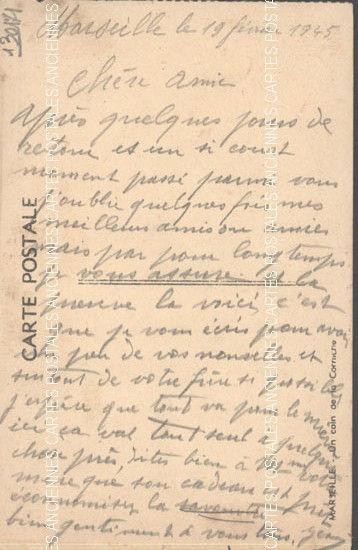 Marseille le 19 février 1945
Chère amie
Après quelques jours de
retour et un si court
moment passé parmi vous
j'oublie quelques fois mes
meilleurs amis ou amies
mais pas pour longtemps
je vous assure et la
preuve la voici, c'est
que je vous écris pour avoir
un peu de vos nouvelles et
surtout de votre frère si possible
j'espère que tout va pour le mieux
ici ça va tout seul à quelque
chose près, dites bien à
que son cadeau est
économiser la
bien gentiment à vous tous,
CARTE POSTALE
MARSEILLE - Un coin de la Corniche
CARTES POSTALES ANCIENNES CARTES POSTALES ANCIENNES CARTES POSTALES ANCIENNES